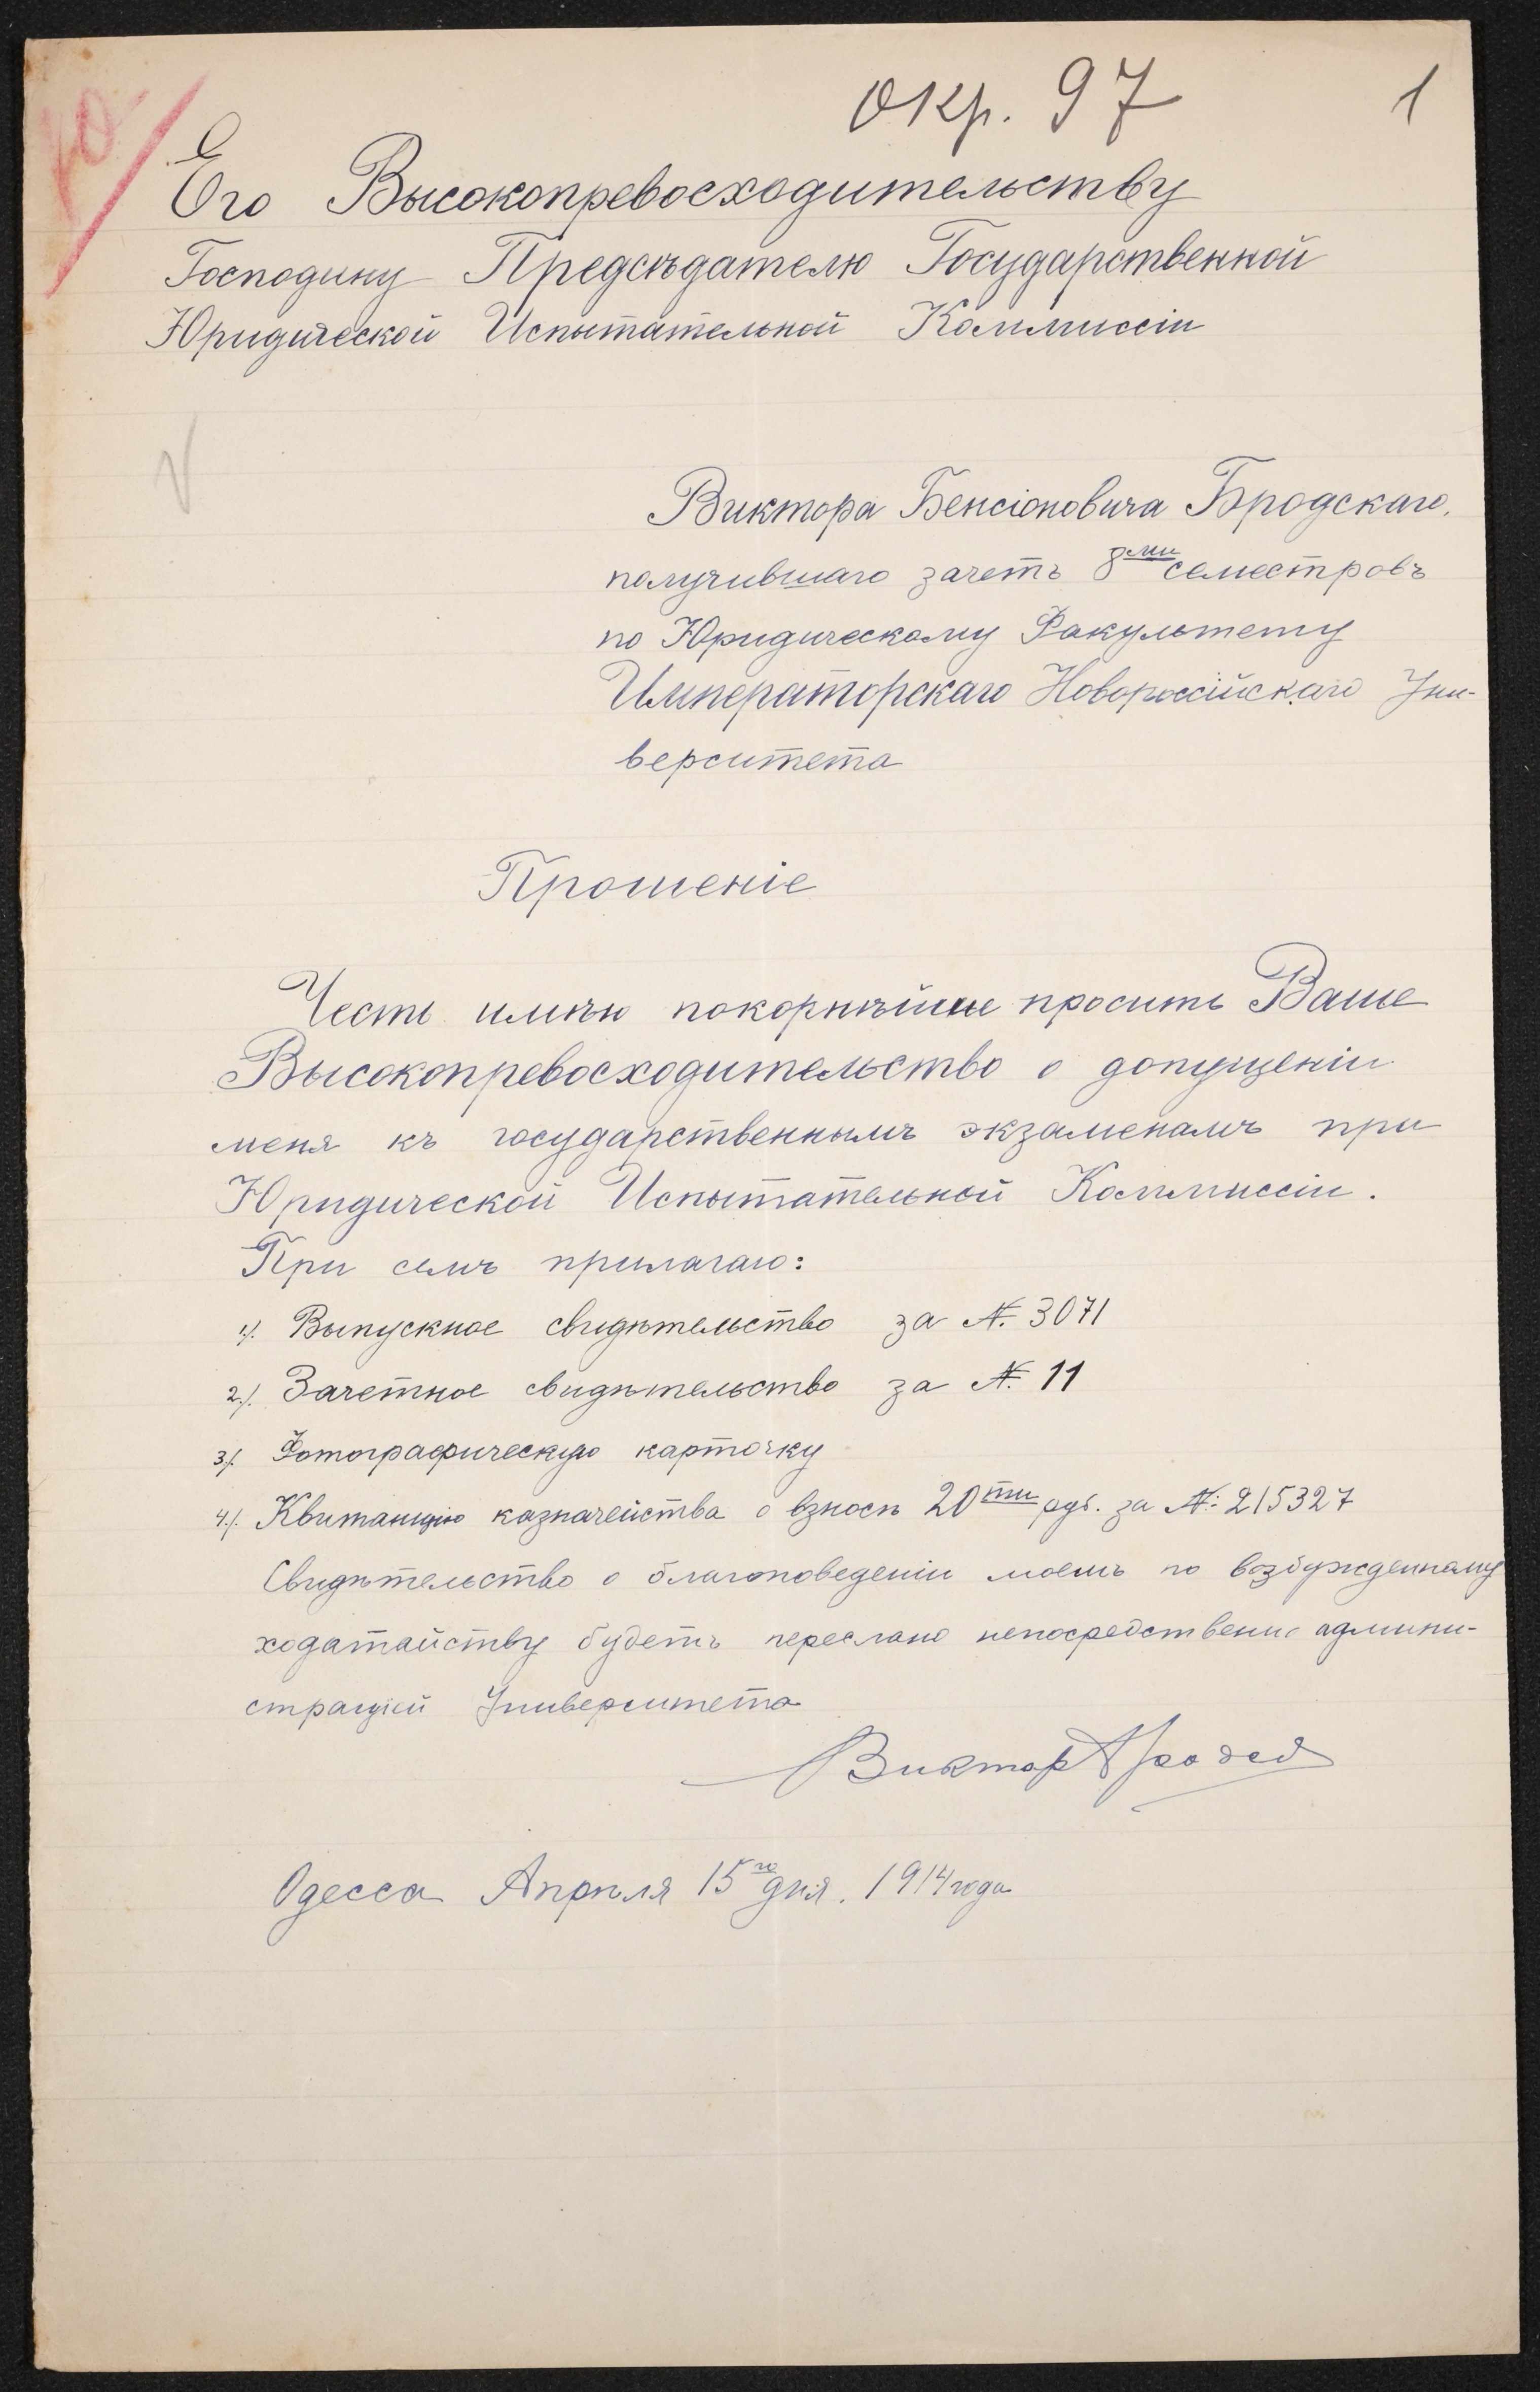 окр. 97
1
Его Высокопревосходительству
Господину Предсѣдателю Государственной
Юридической Испытательной Коммиссіи
Виктора Бенсіоновича Бродскаго,
получившаго зачетъ 8ми семестровъ
по Юридическому Факультету
Императорскаго Новороссійскаго Уни-
верситета
Прошеніе
Честь имѣю покорнѣйше просить Ваше
Высокопревосходительство о допущеніи
меня къ государственнымъ экзаменамъ при
Юридической Испытательной Коммиссіи.
При семъ прилагаю:
1). Выпускное свидѣтельство за №. 3071
2). Зачетное свидѣтельство за №. 11
3). Фотографическую карточку
4). Квитанцію казначейства о взносѣ 20ти руб. за №: 215327
Свидѣтельство о благоповеденіи моемъ по возбужденному
ходатайству будетъ переслано непосредственно админи-
страціей Университета
Виктор
Одесса Апрѣля 15го дня. 1914 года